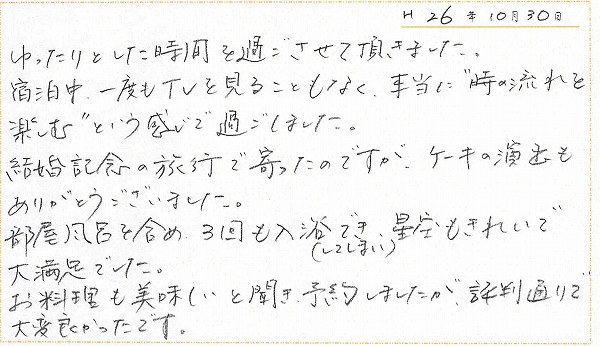 H 26 年 10月 30日
ゆったりとした時間を過ごさせて頂きました。
宿泊中、一度もTVを見ることもなく、本当に"時の流れを
楽しむ"という感じで過ごしました。
結婚記念の旅行で寄ったのですが、ケーキの演出も
ありがとうございました。
部屋風呂を含め、3回も入浴でき、星空もきれいで
(してしまい)
大満足でした。
お料理も美味しいと聞き、予約しましたが、評判通りで
大変良かったです。